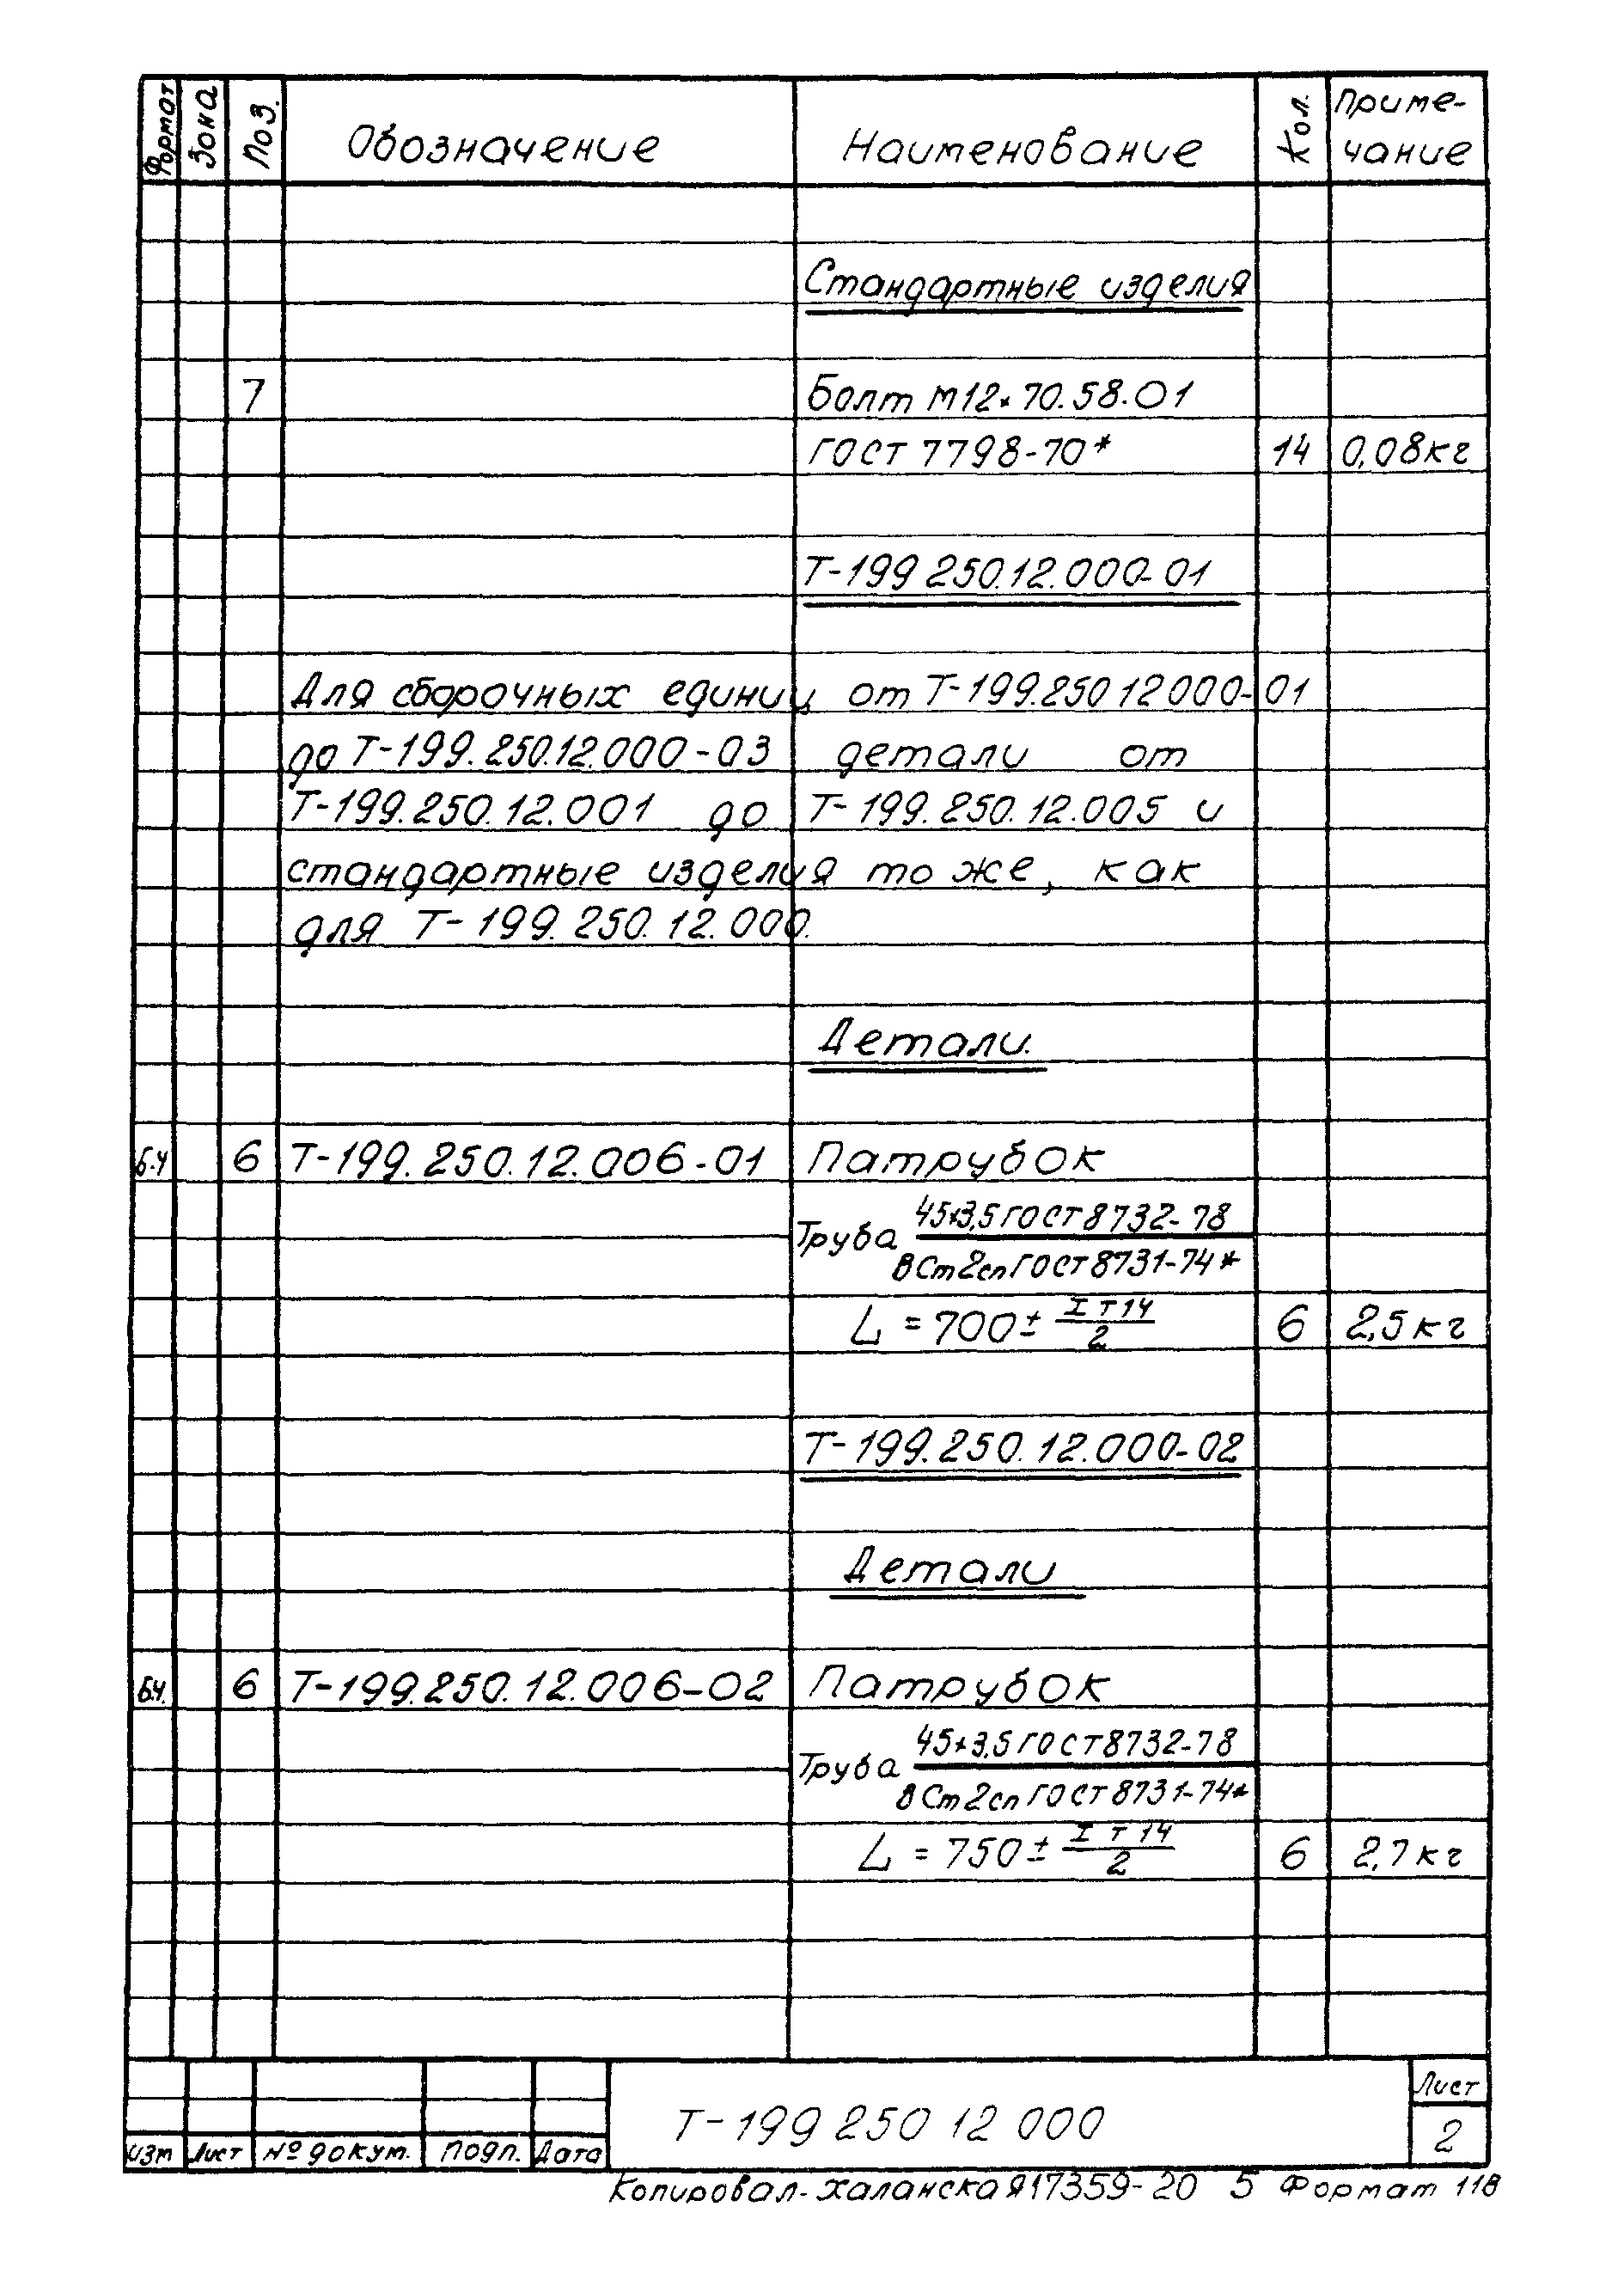 Формат Зона Поз. Обозначение Наименование Кол. Приме-
чание
Стандартные изделия
7 Болт М12×70.58.01
ГОСТ 7798-70* 14 0,08кг
Т-199 250.12.000-01
Для сборочных единиц от Т-199.250 12 000-01
до Т-199.250.12.000-03 детали от
Т-199.250.12.001 до Т-199.250.12.005 и
стандартные изделия то же, как
для Т-199.250.12.000.
Детали.
Б.Ч 6 Т-199.250.12.006-01 Патрубок
45×3,5 ГОСТ 8732-78
Труба
ВСт2сп ГОСТ 8731-74*
L = 700 ± IТ14/2 6 2,5кг
Т-199.250.12.000-02
Детали
Б.Ч. 6 Т-199.250.12.006-02 Патрубок
45×3,5 ГОСТ 8732-78
Труба
ВСт2сп ГОСТ 8731-74*
L = 750 ± IТ14/2 6 2,7кг
Т-199 250 12 000
Лист
2
Изм Лист № докум. Подп. Дата
Копировал-Халанская 17359-20 5 Формат 11В